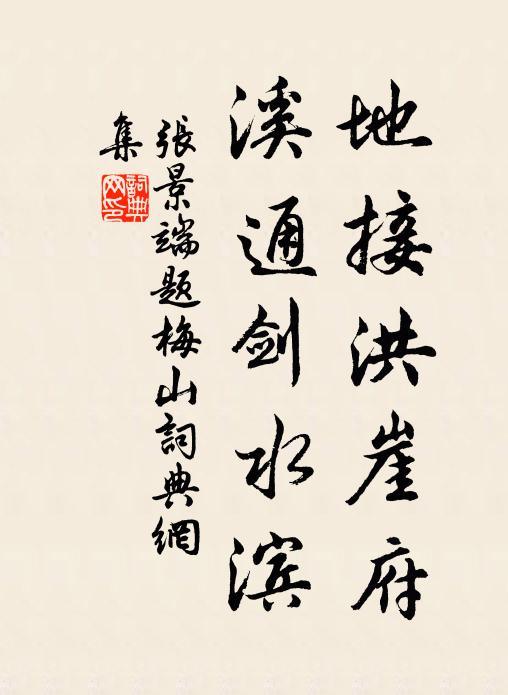 地接洪崖府
溪通剑水滨
張景端题梅山詞典網
集
詞典
网印